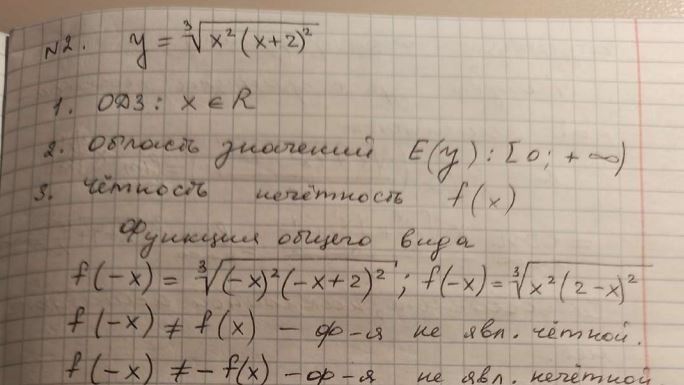 №2. y = ∛(x²(x+2)²)
1. ОДЗ: x ∈ R
2. Область значений E(y): [0; +∞)
3. Чётность нечётность f(x)
Функция общего вида
f(-x) = ∛((-x)²(-x+2)²); f(-x) = ∛(x²(2-x)²)
f(-x) ≠ f(x) - ф-я не явл. чётной.
f(-x) ≠ -f(x) - ф-я не явл. нечётной